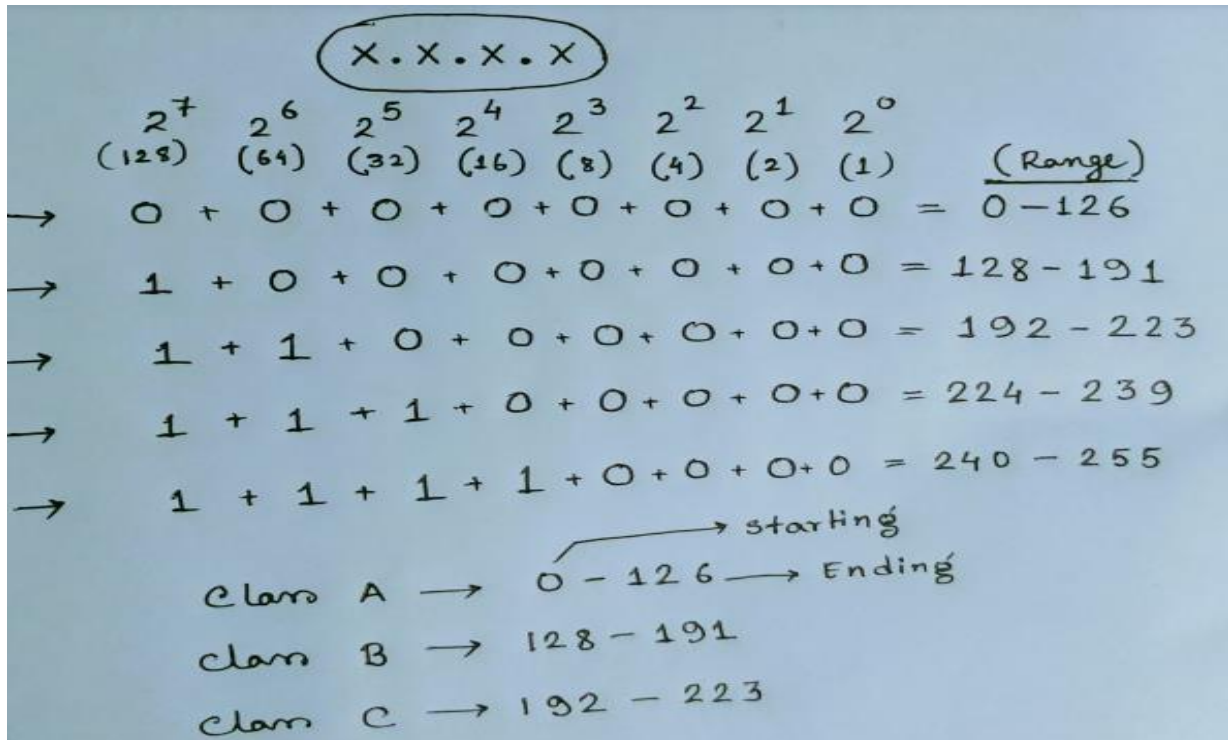 x.x.x.x
2⁷ 2⁶ 2⁵ 2⁴ 2³ 2² 2¹ 2⁰
(128) (64) (32) (16) (8) (4) (2) (1) (Range)
→ 0 + 0 + 0 + 0 + 0 + 0 + 0 + 0 = 0 - 126
→ 1 + 0 + 0 + 0 + 0 + 0 + 0 + 0 = 128 - 191
→ 1 + 1 + 0 + 0 + 0 + 0 + 0 + 0 = 192 - 223
→ 1 + 1 + 1 + 0 + 0 + 0 + 0 + 0 = 224 - 239
→ 1 + 1 + 1 + 1 + 0 + 0 + 0 + 0 = 240 - 255
→ starting
Class A → 0 - 126 → Ending
Class B → 128 - 191
Class C → 192 - 223